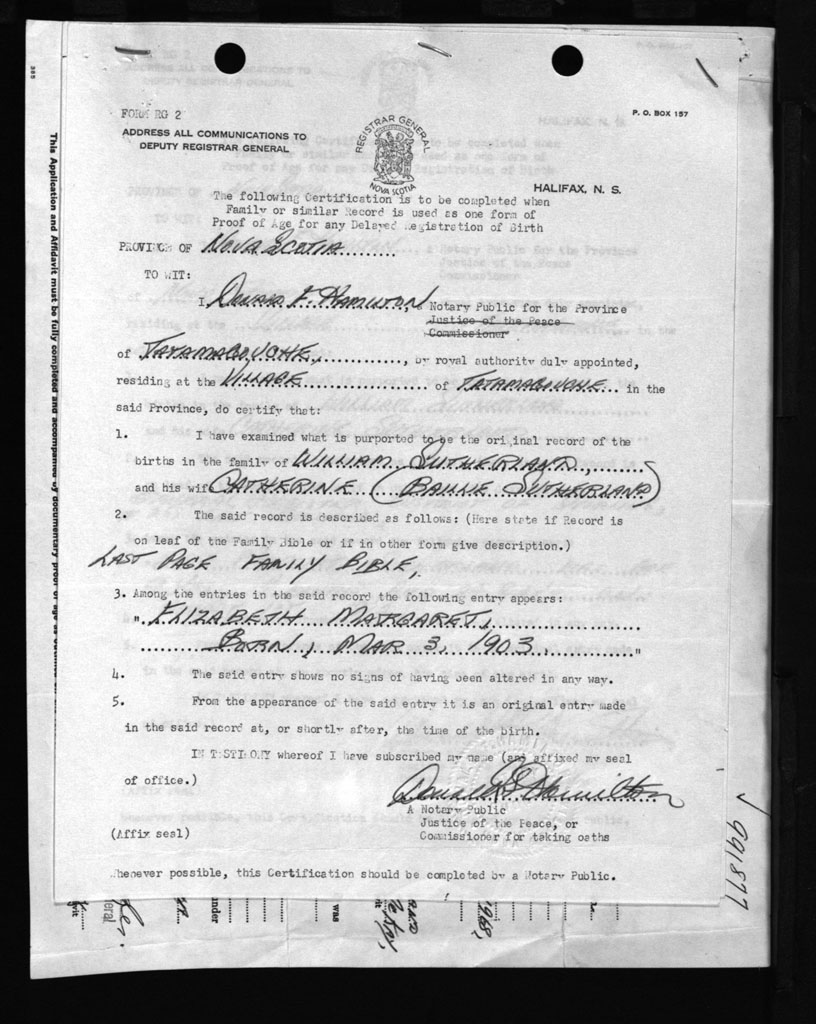 FORM RG 2
P. O. BOX 157
ADDRESS ALL COMMUNICATIONS TO
DEPUTY REGISTRAR GENERAL
REGISTRAR GENERAL
NOVA SCOTIA
HALIFAX, N. S.
The following Certification is to be completed when
Family or similar Record is used as one form of
Proof of Age for any Delayed Registration of Birth
PROVINCE OF NOVA SCOTIA
TO WIT:
I, Donald F. Hamilton, a Notary Public for the Province
Justice of the Peace
Commissioner
of TATAMAGOUCHE, by royal authority duly appointed,
residing at the VILLAGE of TATAMAGOUCHE in the
said Province, do certify that:
1. I have examined what is purported to be the original record of the
births in the family of WILLIAM SUTHERLAND,
and his wife CATHERINE (BAILLIE SUTHERLAND)
2. The said record is described as follows: (Here state if Record is
on leaf of the Family Bible or if in other form give description.)
LAST PAGE FAMILY BIBLE,
3. Among the entries in the said record the following entry appears:
" ELIZABETH MARGARET,
BORN, MAR 3, 1903, "
4. The said entry shows no signs of having been altered in any way.
5. From the appearance of the said entry it is an original entry made
in the said record at, or shortly after, the time of the birth.
IN TESTIMONY whereof I have subscribed my name (and affixed my seal
of office.)
Donald F. Hamilton
A Notary Public
Justice of the Peace, or
Commissioner for taking oaths
(Affix seal)
Whenever possible, this Certification should be completed by a Notary Public.
385
This Application and Affidavit must be fully completed and accompanied by documentary proof of age
991877
eral
under
was
1968,